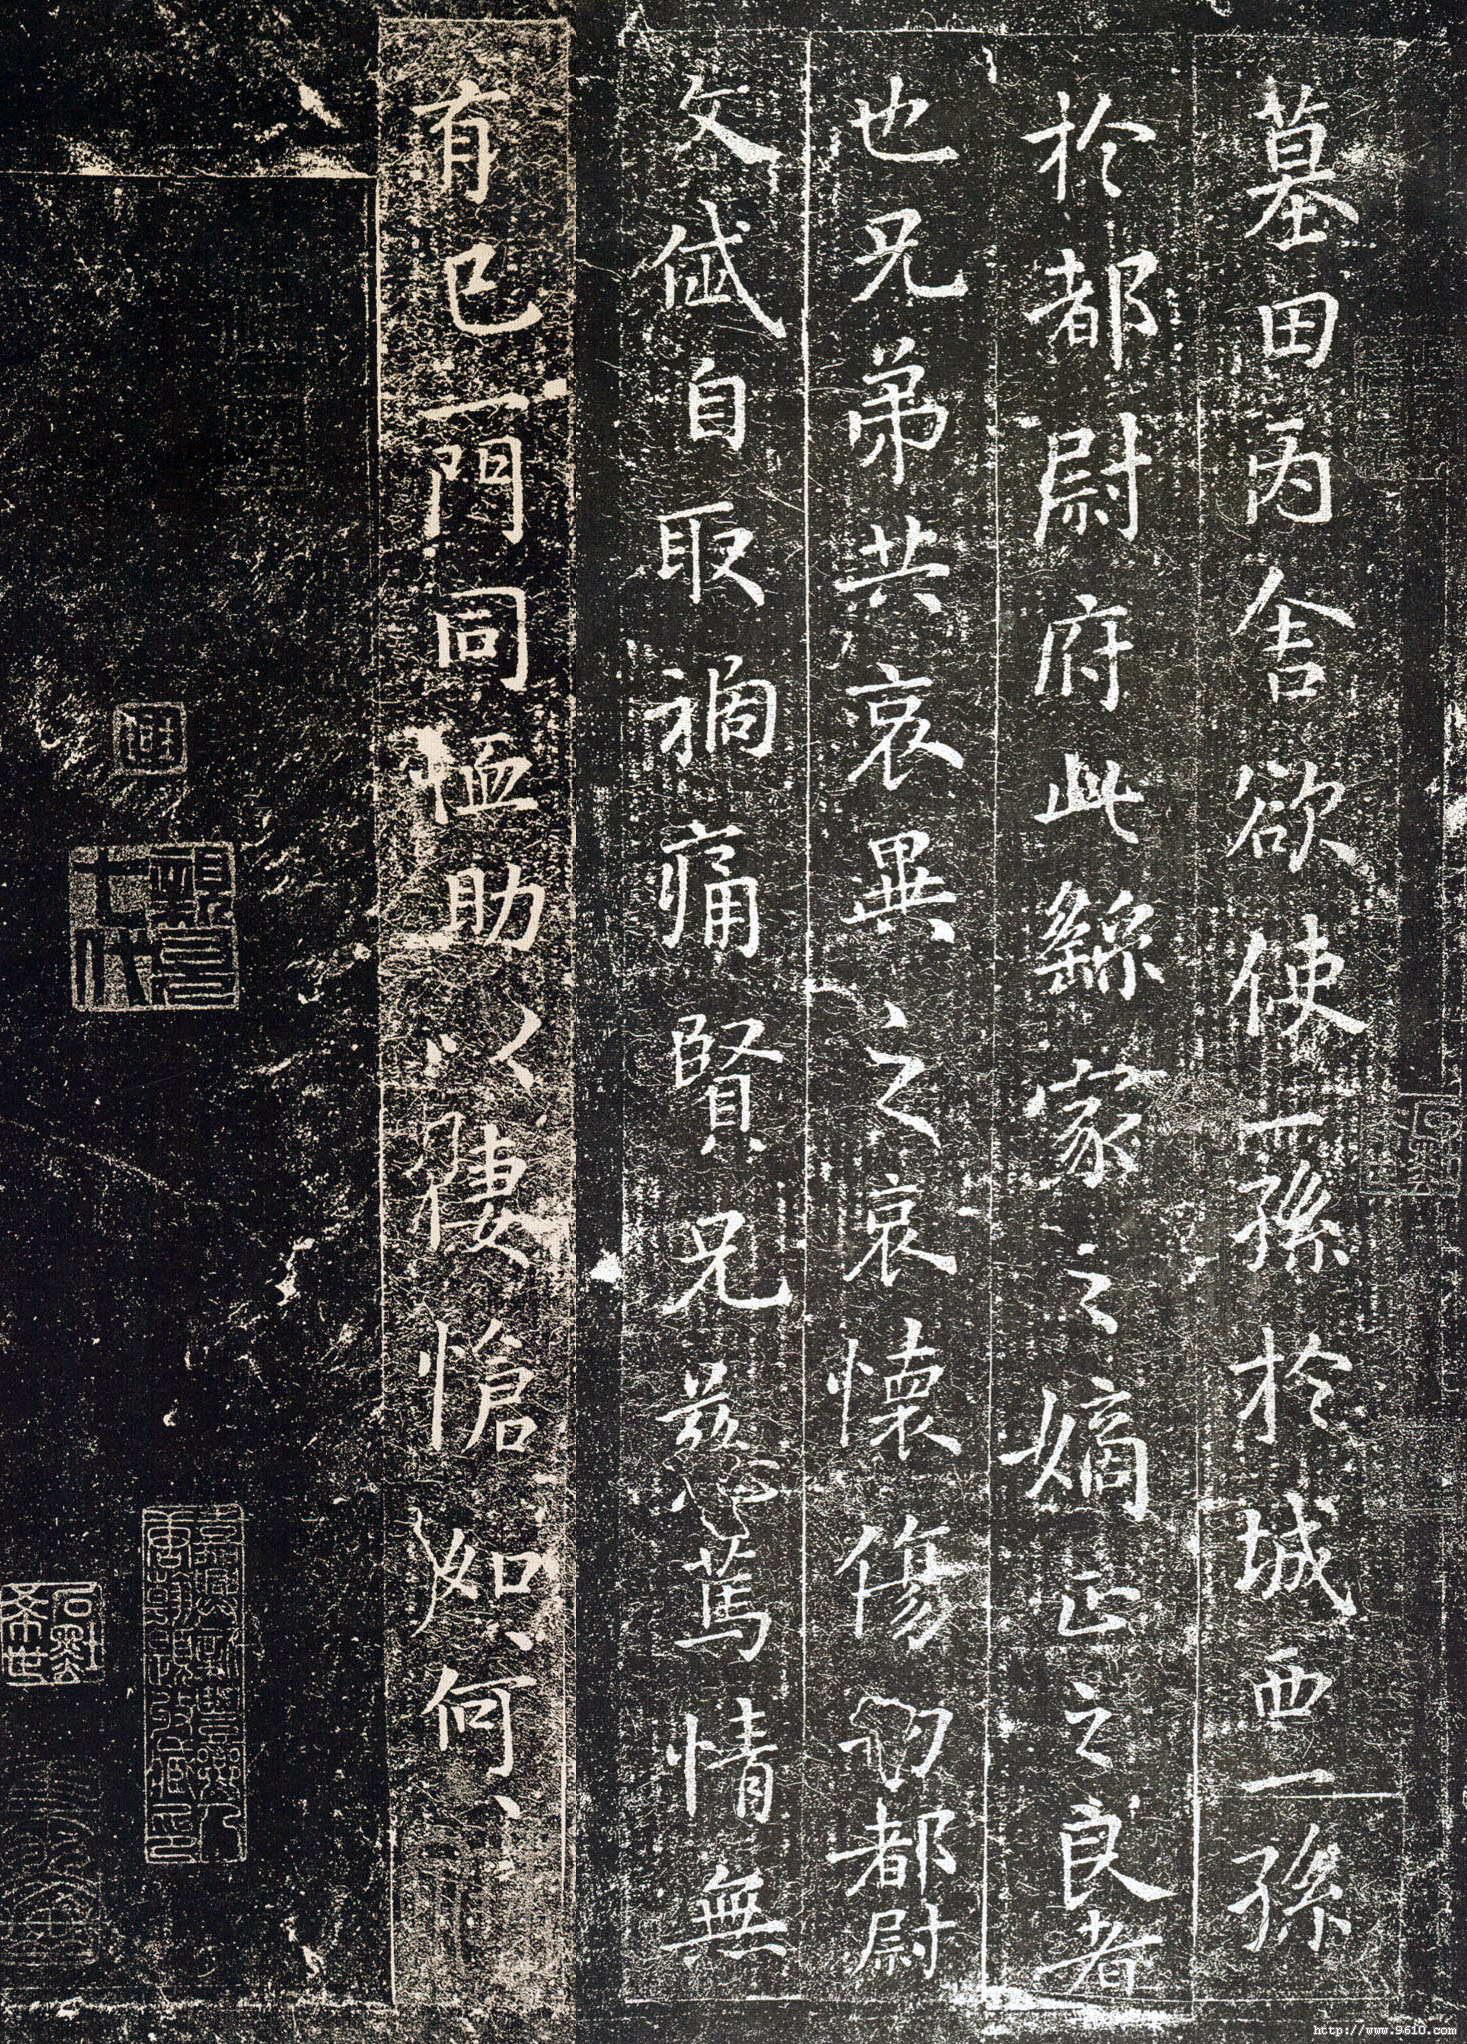 墓田丙舍欲使一孫於城西一孫
於都尉府此繇家之嫡正之良者
也兄弟共哀異之哀懷傷切都尉
文岱自取禍痛賢兄慈篤情無
有已一門同恤助以悽愴如何如何
http://www.9610.com